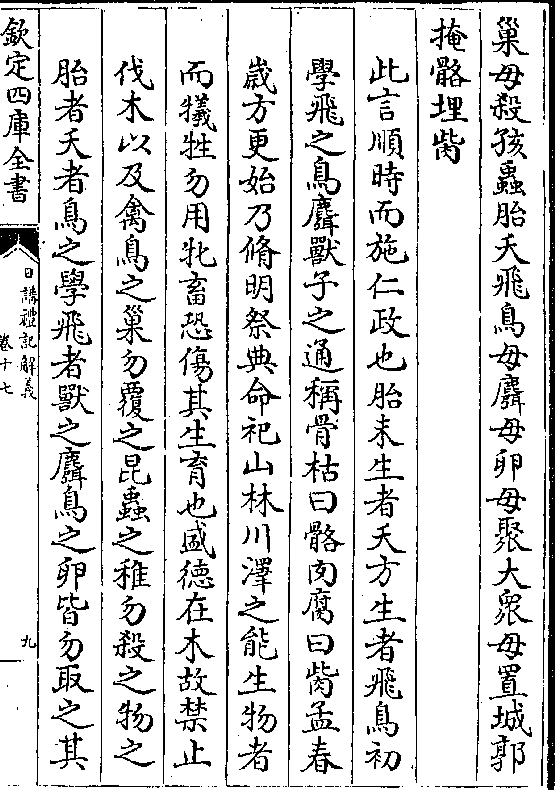 巢毋殺孩蟲胎夭飛鳥毋麛毋卵毋聚大衆毋置城郭
掩骼埋胔
此言順時而施仁政也胎未生者夭方生者飛鳥初
學飛之鳥麛獸子之通稱骨枯曰骼肉腐曰胔孟春
歲方更始乃脩明祭典命祀山林川澤之能生物者
而犧牲勿用牝畜恐傷其生育也盛德在木故禁止
伐木以及禽鳥之巢勿覆之昆蟲之稚勿殺之物之
胎者夭者鳥之學飛者獸之麛鳥之卵皆勿取之其
欽定四庫全書
日講禮記解義
卷十七
九